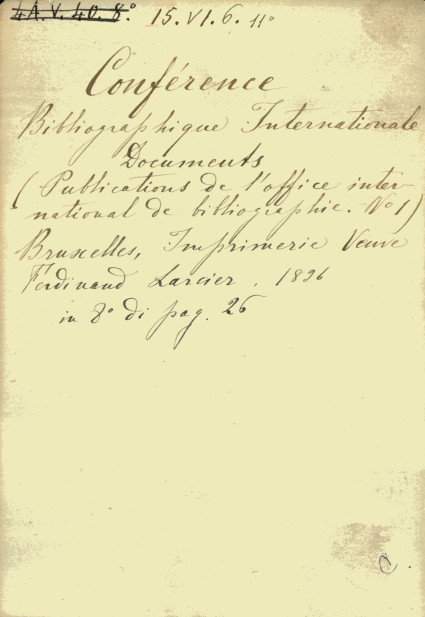 4 A. V. 40. 8.° 15. VI. 6. 11°
Conférence
Bibliographique Internationale
Documents
(Publications de l'office inter-
national de bibliographie. No 1)
Bruxelles, Imprimerie Veuve
Ferdinand Larcier. 1896
in 8° di pag. 26
C.